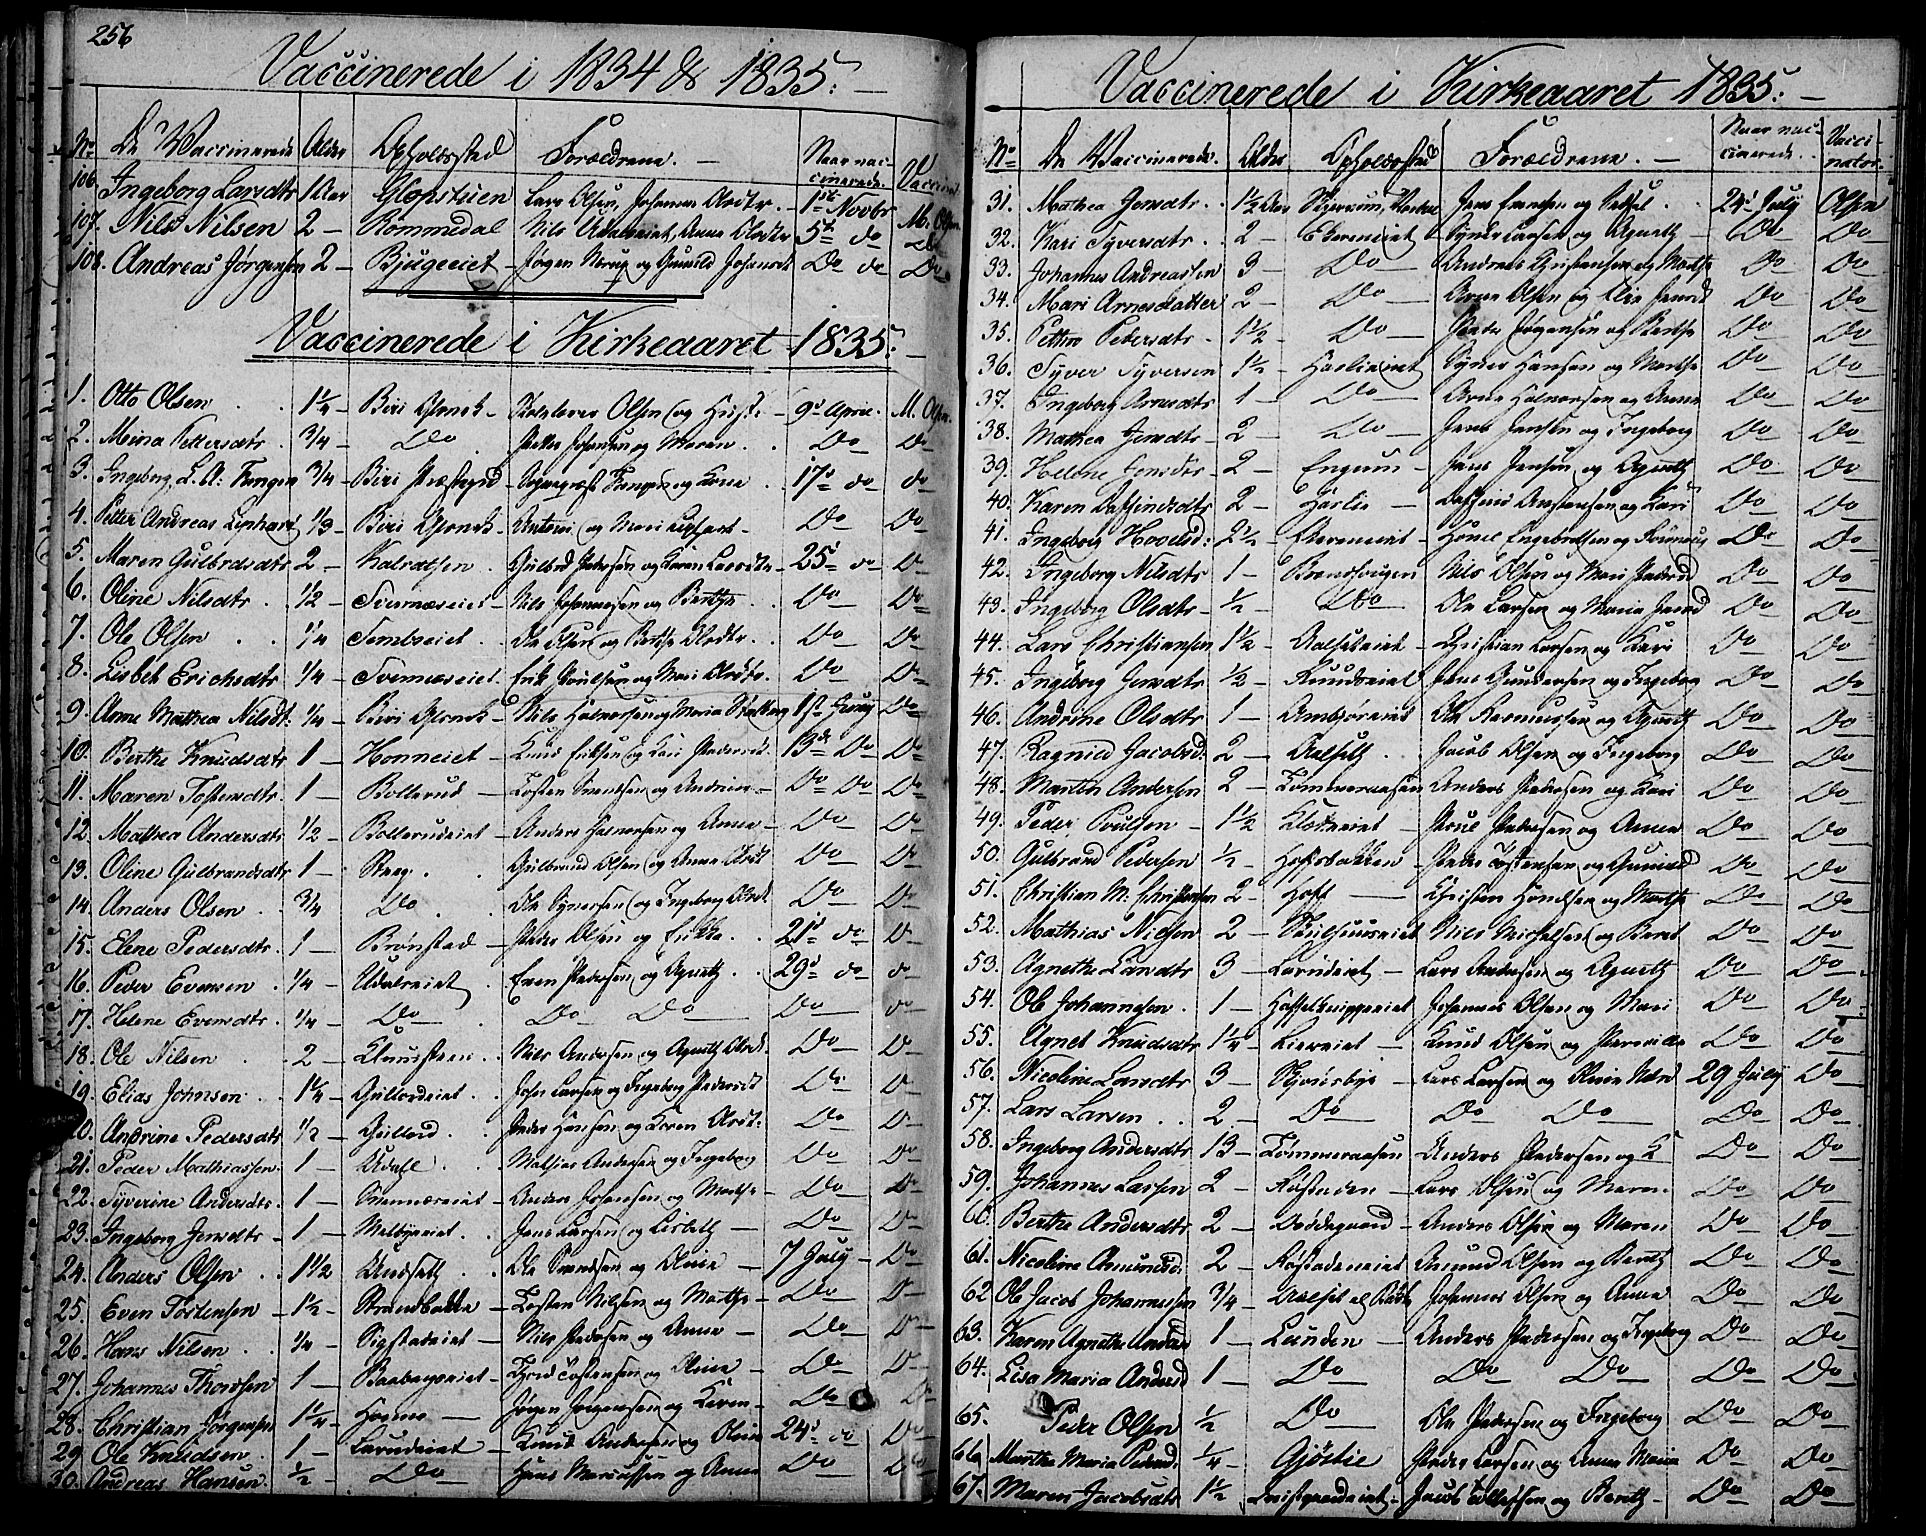 256
Vaccinerede i 1834 & 1835.
No De Vaccinerede Alder Opholdsted Forældrene. Naar vaccinerede. Vaccinat.
106. Ingeborg Larsdtr 1 Aar Glæstuen Lars Olsen, Johanna Olsdtr. 1st Novbr M. Olsen
107. Nils Nilsen 2 Kommedal Nils Anne Olsdtr 5te do Do
108. Andreas Jørgensen 2 Bjugeeiet Jørgen og Gunild Johansdt Do do Do
Vaccinerede i Kirkeaaret 1835.
1. Otto Olsen 1¼ Biri Olsen og 9d April. M. Olsen
2. Mina Pettersdtr. ¾ Do Petter Johansen og Maren Do Do
3. Ingeborg L. A. Fangen ¾ Biri Præstegrd Fangen og Kone 17d do do
4. Petter Andreas Liphart ⅓ Biri Antoni og Mari Liphart Do Do
5. Maren Gulbrdsdtr 2 Kalrætsen Gulbrd Pedersen og Karen Larsdtr 25d do D
6. Oline Nilsdtr ½ Svennæseiet Nils Johannesen og Berthe Do Do
7. Ole Olsen ¼ Sembseiet Ole og Berthe Olsdtr. Do Do
8. Lisbet Erichsdtr ¼ Svennæseiet Erik Poulsen og Mari Olsdtr. Do Do
9. Anne Mathea Nilsdt. ¼ Biri Nils Halvorsen og Maria 1st Juny Do
10. Berthe Knudsdtr 1 Honneeiet Knud Eriksen og Kari Pedersdt. 13de Do Do
11. Maren Tostensdtr. 1 Bollerud Tosten Svendsen og Andrine Do Do Do
12. Mathea Andersdtr ½ Bollerudeiet Anders Halvorsen og Anne Do Do
13. Oline Gulbrandsdtr 1 Gulbrand Olsen og Anne Olsdt Do D
14. Anders Olsen ¾ Do Ole Syversen og Ingeborg Olsdt. Do D
15. Elene Pedersdtr. 1 Brønstad Peder Olsen og Erikka 21d do D
16. Peder Evensen ¼ Udalseiet Even Pedersen og Agneth 29d do do
17. Helene Evensdtr. ¼ Do Do Do Do do
18. Ole Nilsen 2 Klunsteen Nils Andersen og Agneth Olsdt. Do D
19. Elias Johnsen 1¼ Gullordeiet John Larsen og Ingeborg Pedersdt Do D
20. Andrine Pedersdtr ½ Gullord Peder Hansen og Karen Olsdt. Do D
21. Peder Mathiassen 1 Udahl Mathias Andersen og Ingeborg Do Do
22. Syverine Andersdtr. 1 Svennæseiet Anders Johansen og Marthe Do Do
23. Ingeborg Jensdtr 1 Melbyeeiet Jens Larsen og Lisbeth Do Do
24. Anders Olsen 1½ Undseth Ole Svendsen og Oline 7 July Do
25. Even Tostensen 1½ Strandbakke Tosten Nilsen og Marthe Do D
26. Hans Nilsen ¼ Sigstadeiet Nils Pedersen og Anne Do D
27. Johannes Thordsen 1 Thord Tostensen og Oline Do D
28. Christian Jørgensen 1¼ Honne Jørgen Jørgensen og Karen Do Do
29 Ole Knudsen 1 Larudeiet Knud Andersen og Oline 24d do Do
30. Andreas Hansen ½ Do Hans Marcussen og Anne Do Do
Vaccinerede i Kirkeaaret 1835.
No De Vaccinerede. Alder Opholdssted Forældrene. Naar vaccinerede. Vaccinator.
31. Mathea Jensdtr 1½ Aar Jens og Sissel 24d July Olsen
32. Kari Syversdtr. 2 Ekerneiet Syver Larsen og Agneth Do Do
33. Johannes Andreassen 3 Do Andreas Christensen og Marthe Do Do
34. Mari Arnesdatter 2 Do Arne Olsen og Eline Do Do
35. Petter Pedersdtr. 1½ Do Peder Jørgensen og Berthe Do Do
36. Syver Syversen 1½ Haslieeiet Syver Hansen og Marthe Do Do
37. Ingeborg Arnesdtr 1 Do Arne Halvorsen og Anne Do Do
38. Mathea Jensdtr 2 Do Jens Jensen og Ingeborg Do Do
39. Helene Jensdtr 2 Engum Jens Jensen og Agneth Do Do
40. Karen Datfindsdtr 2 Haslie og Kari Do Do
41. Ingeborg Hovelsd: 2½ Ekerneeiet Hovel Engebretsen og Rønnaug Do Do
42. Ingeborg Nilsdtr 1 Brendhaugen Nils Olsen og Mari Pedersd Do Do
43. Ingeborg Olsdtr ½ Do Ole Larsen og Maria Do Do
44. Lars Christiansen 1½ Aalseteiet Christian Larsen og Kari Do Do
45. Ingeborg Jensdtr ½ Knudseiet Jens Gundersen og Ingeborg Do Do
46. Andrine Olsdtr 1 Ambjøreiet Ole Rasmussen og Agneth Do Do
47. Ragnild Jacobsd: 2 Aalseth Jacob Olsen og Ingeborg Do Do
48. Marthe Andersen 2 Tømmeraasen Anders Pedersen og Kari Do Do
49. Peder Poulsen 1½ Kloxeeiet Poul Pedersen og Anne Do Do
50. Gulbrand Pedersen ½ Hoftsbakken Peder Tostensen og Gunild Do Do
51. Christian M. Christensen 2 Hoft Christen Hendsen og Marthe Do Do
52. Mathias Nilsen 2 Skielhuuseiet Nils Michelsen og Beret Do Do
53. Agnethe Larsdtr 3 Larudeiet Lars Andersen og Agneth Do Do
54. Ole Johannesen 1 Hasselknippeeiet Johannes Olsen og Mari Do Do
55. Agnet Knudsdtr 1¼ Lieeeiet Knud Olsen og Pernille Do Do
56. Nicoline Larsdtr 3 Skjersbye Lars Larsen og Oline 29 July Do
57. Lars Larsen 2 Do Do Do Do Do
58. Ingeborg Andersdtr 13 Tømmeraasen Anders Pedersen og K Do Do
59. Johannes Larsen 2 Røstaden Lars Olsen og Maren Do Do
60. Berthe Andersdtr 2 Døddegaard Anders Olsen og Maren Do Do
61. Nicoline Amundsd. 2 Røstadeneiet Amund Olsen og Bereth Do Do
62 Ole Jacob Johannessen ¾ Aalset Johannes Olsen og Anne Do Do
63. Karen Agnethe Andersd 1 Lunden Anders Pedersen og Ingeborg Do Do
64. Lisa Maria Andersd 1 Do Do Do Do Do
65. Peder Olsen ½ Do Ole Pedersen og Ingeborg Do Do
66. Marthe Maria Pedersd. ¼ Gjøslie Peder Larsen og Anne Maria Do Do
67. Maren Jacobsdtr 1½ Qvistgaardeiet Jacob Tollefsen og Bereth Do Do